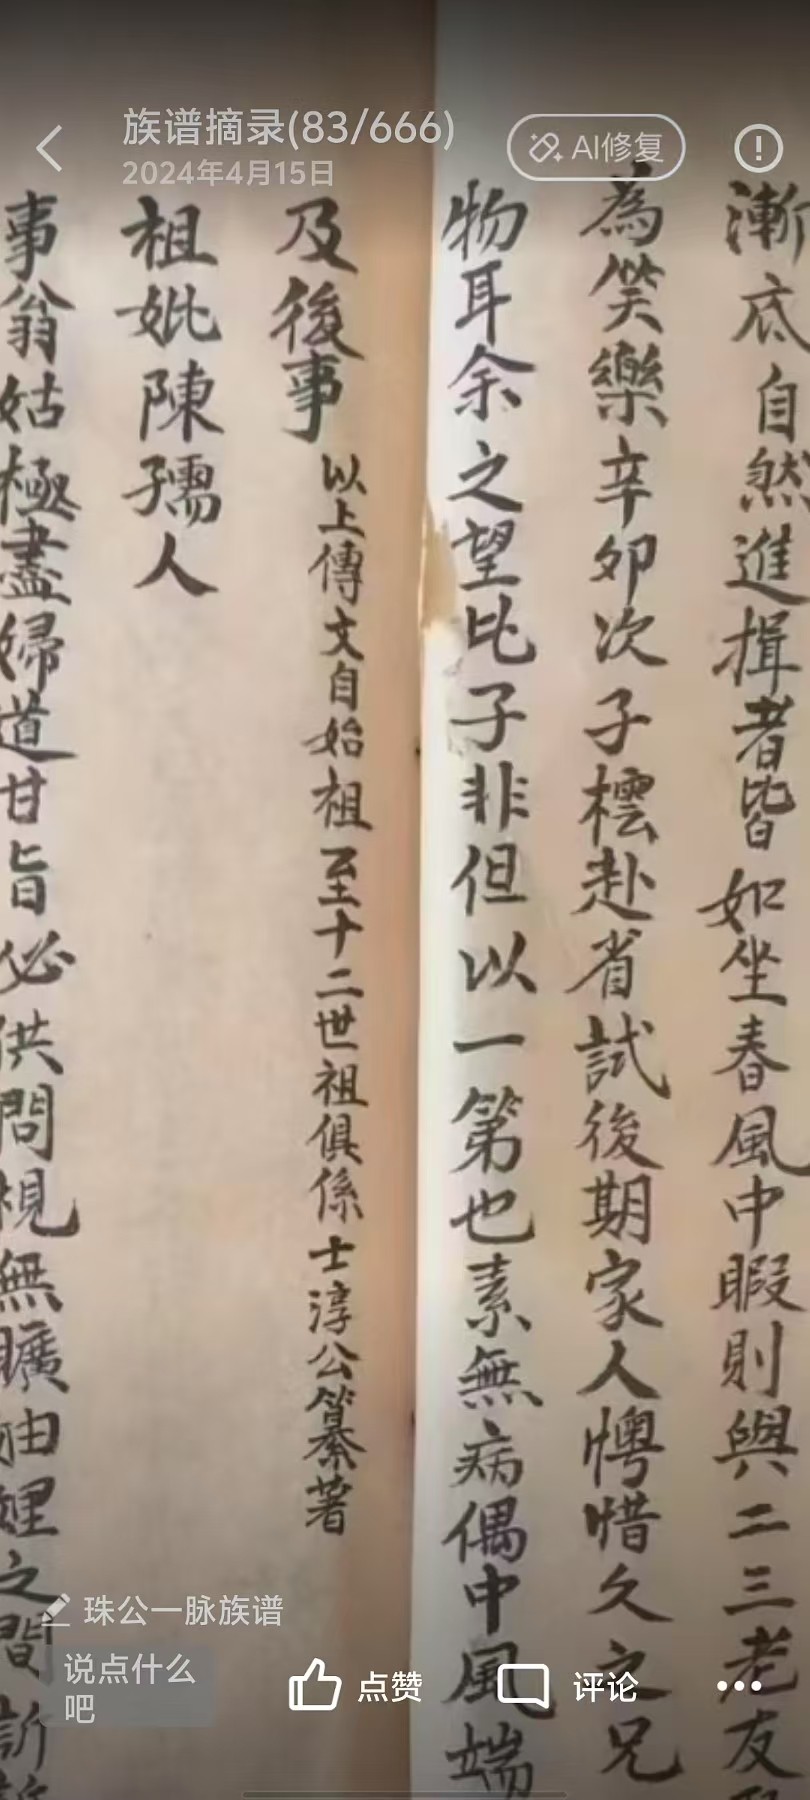 族谱摘录(83/666)
2024年4月15日
AI修复
漸底自然進揖者皆如坐春風中暇則與二三老友
為笑樂辛卯次子橒赴省試後期家人愕惜久之兄
物耳余之望比子非但以一第也素無病偶中風端
及後事
以上傳文自始祖至十二世祖俱係士淳公纂著
祖妣陳孺人
事翁姑極盡婦道甘旨必供問視無曠妯娌之間訢
珠公一脉族谱
说点什么吧
点赞
评论